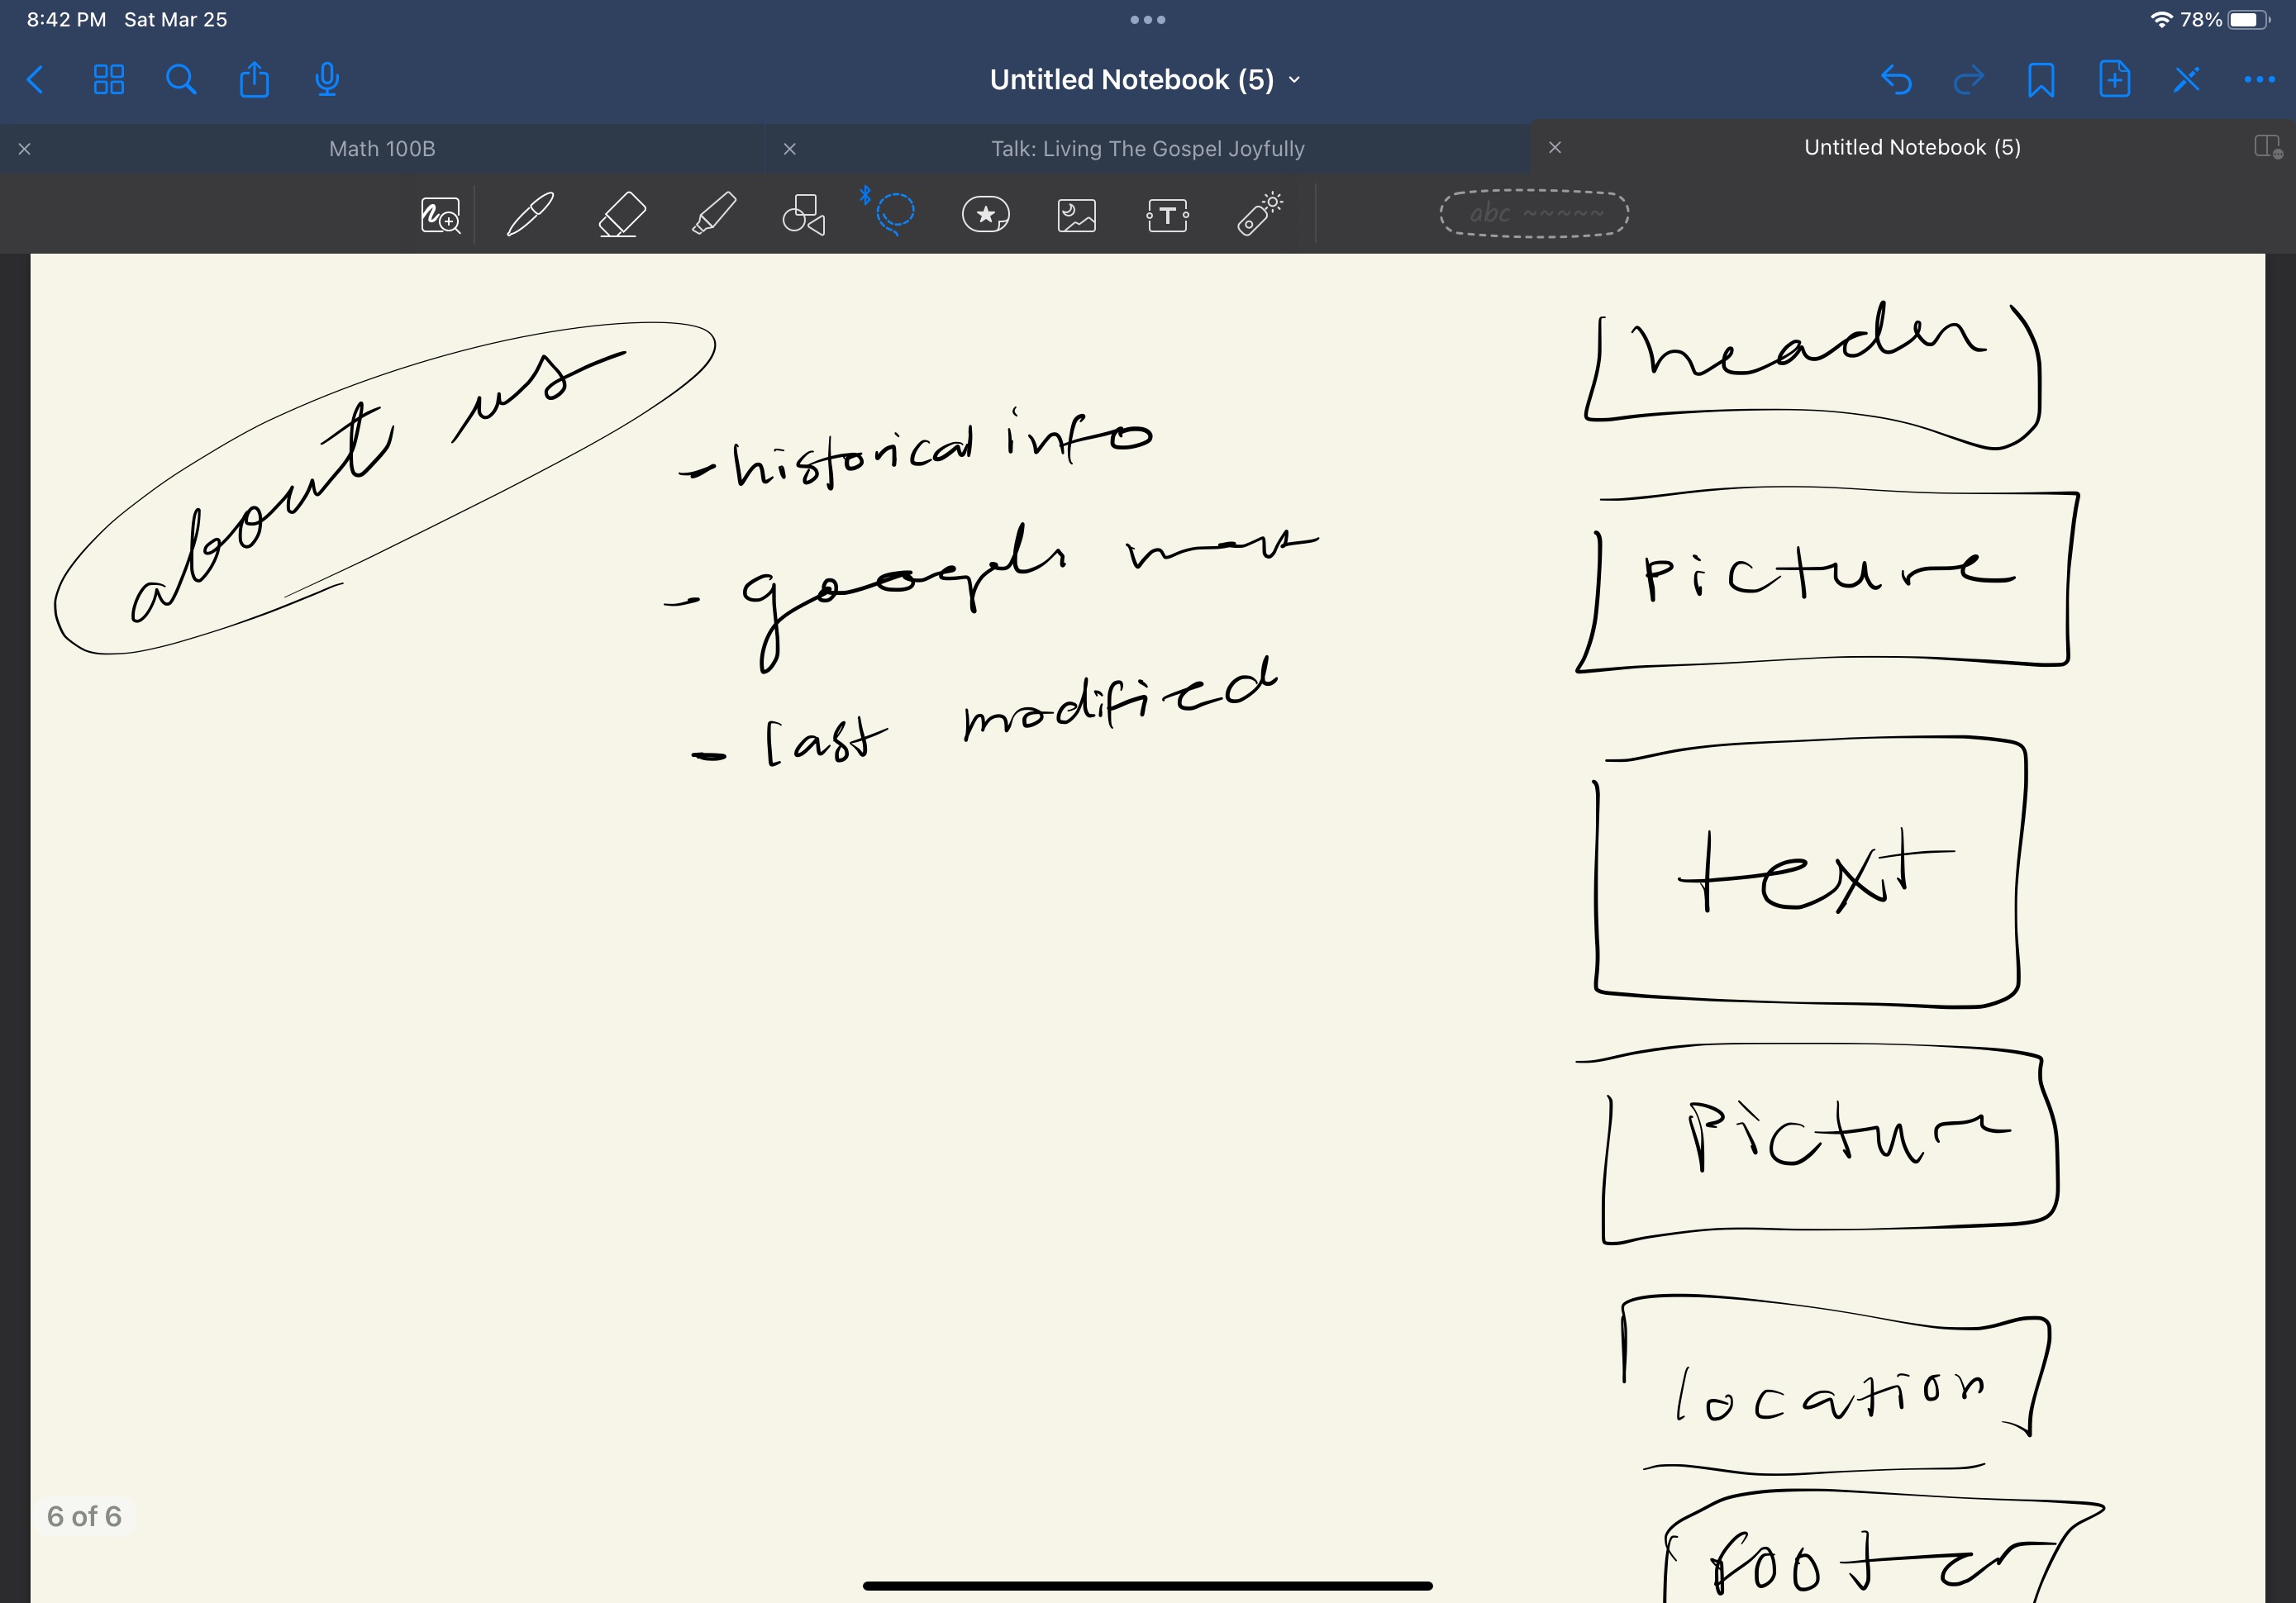 8:42 PM Sat Mar 25
78%
Untitled Notebook (5)
Math 100B
Talk: Living The Gospel Joyfully
Untitled Notebook (5)
abc
T
about us
- historical info
-
- last modified
header
Picture
text
Picture
location
footer
6 of 6